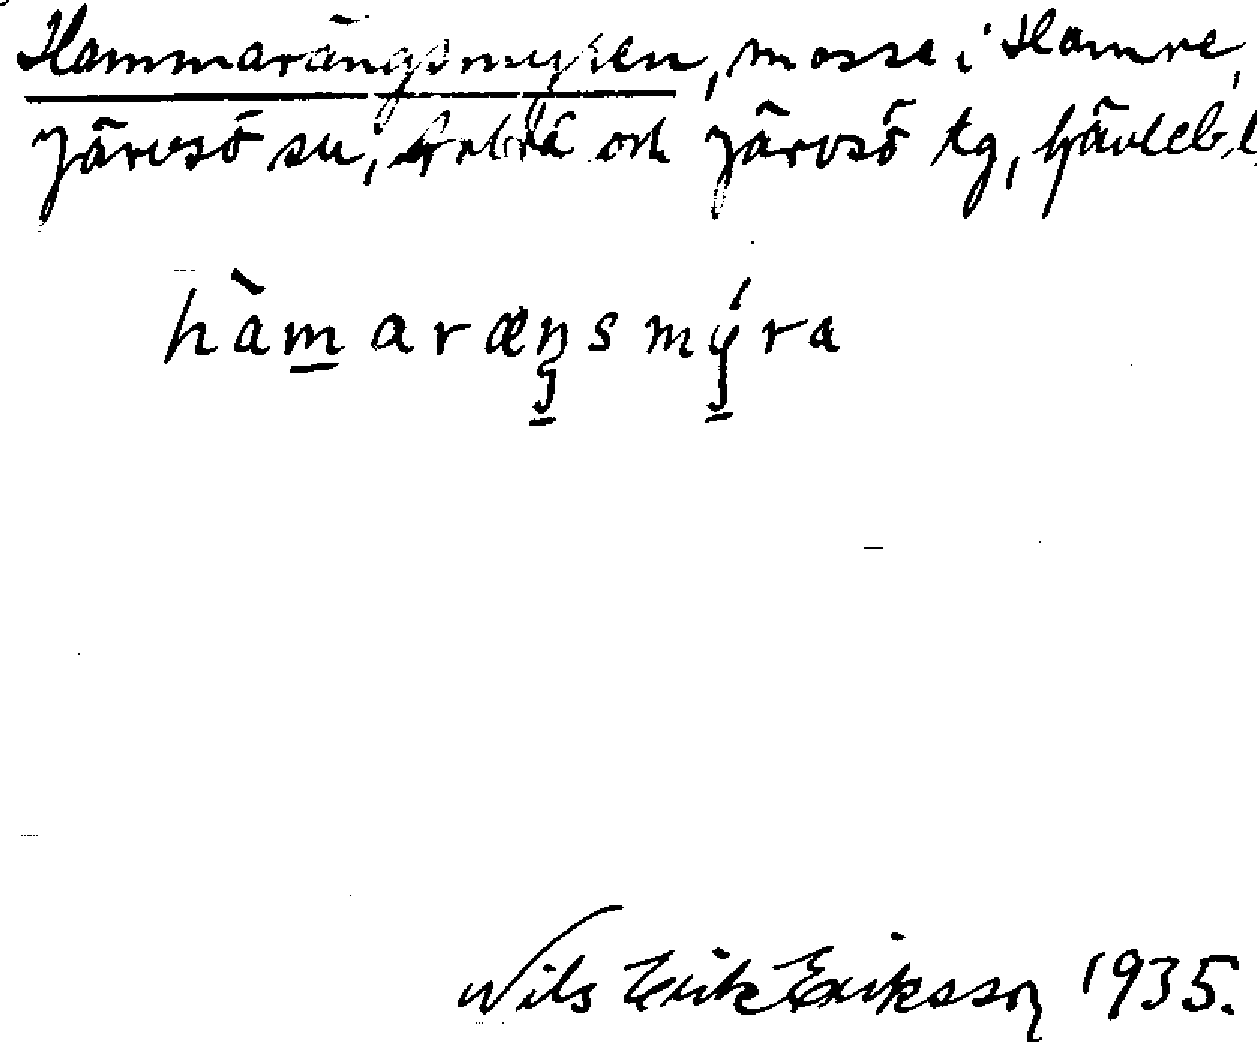 Hammarängsmyren, mosse i Hamre,
Järvsö sn, Arbrå och Järvsö tg, Gävleb. l
hàmaræŋsmýra
Nils Erik Eriksson 1935.